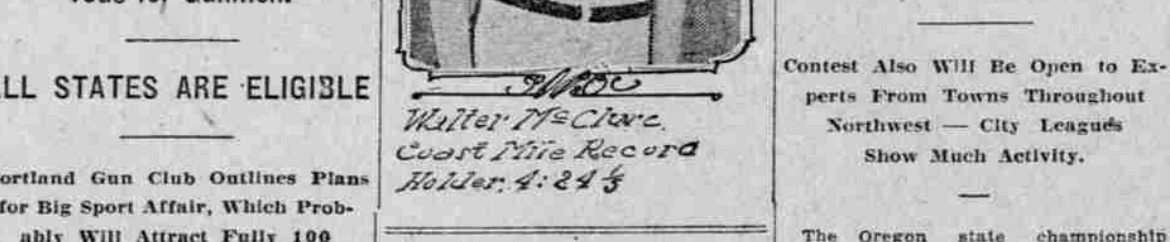 ALL STATES ARE ELIGIBLE
Portland Gun Club Outlines Plans
for Big Sport Affair, Which Prob-
ably Will Attract Fully 100
Walter McClure.
Coast Mile Record
Holder. 4:24
Contest Also Will Be Open to Ex-
perts From Towns Throughout
Northwest — City Leagues
Show Much Activity.
The Oregon state championship